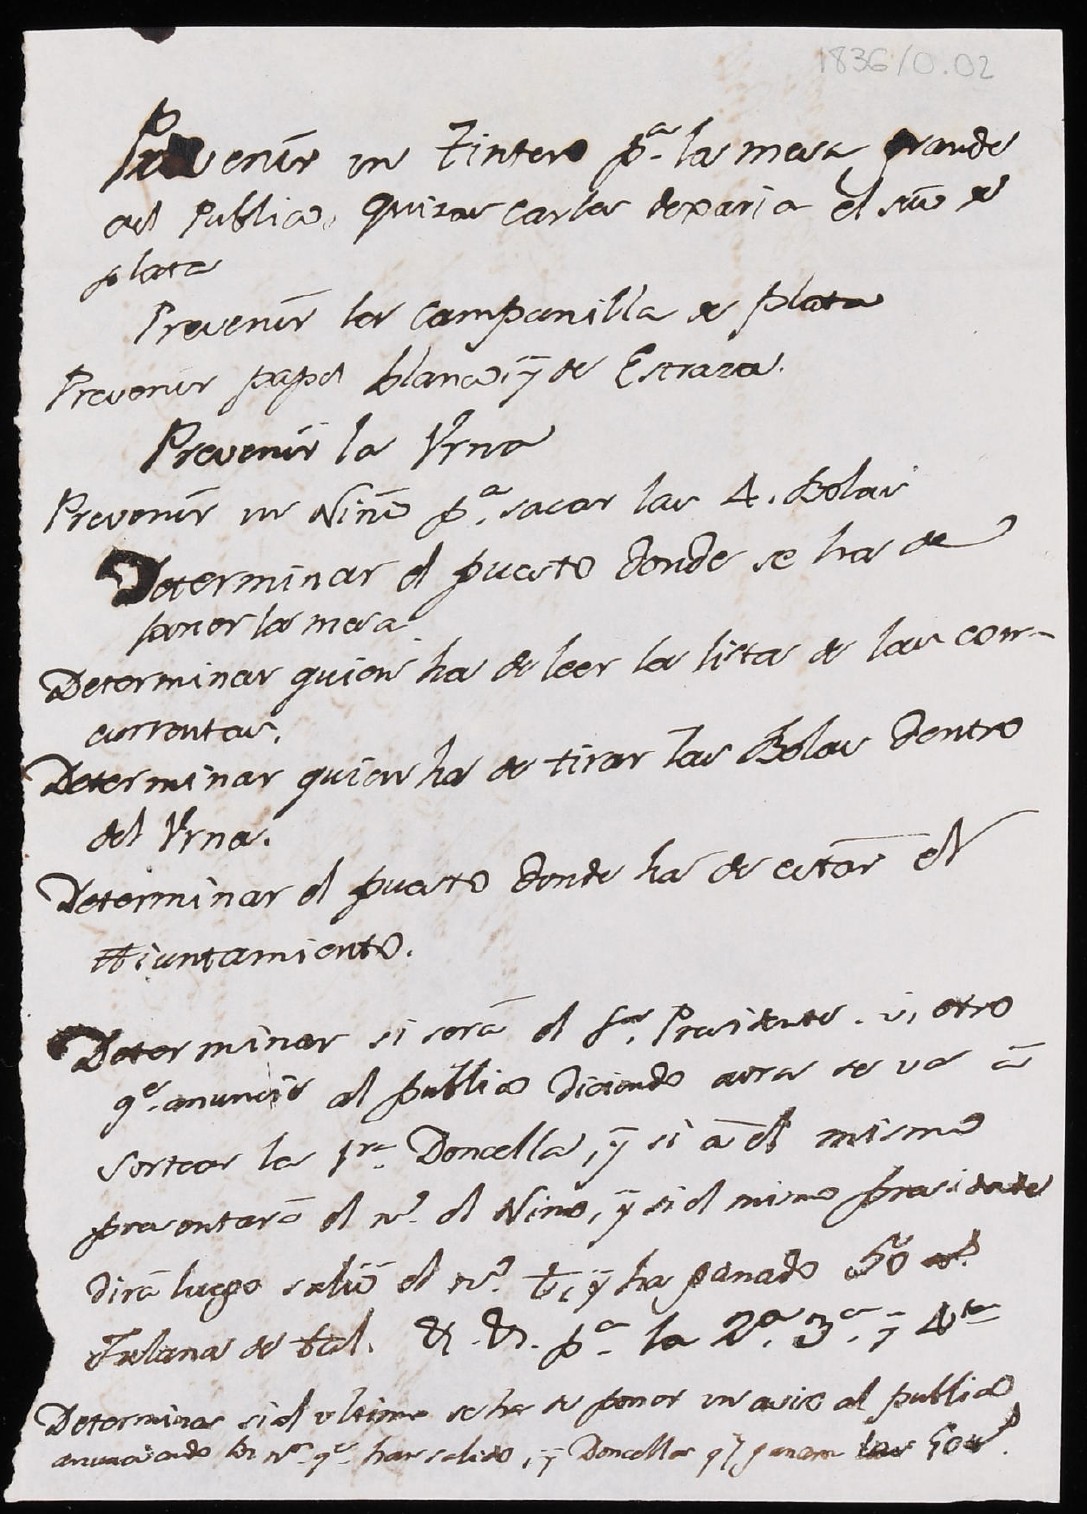 1836/0.02
Prevenir un Tintero pª. la mesa grande
del Publico, quizas Carlos dexaria el suio de
plata
Prevenir la Campanilla de plata
Prevenir papel blanco, ÿ de Estraza.
Prevenir la Vrna
Prevenir un Niño pª. sacar las 4. Bolas
Determinar el puesto donde se ha de
poner la mesa
Determinar quien ha de leer la lista de las con-
currentas.
Determinar quien ha de tirar las Bolas dentro
del Vrna.
Determinar el puesto donde ha de estar el
Aiuntamiento.
Determinar si será el Sor. Presidente. ú, otro
qe. anuncie al publico diciendo aora se va á
Sortear la 1ra. Doncella, ÿ si á el mismo
presentará el nº. el Niño, ÿ si el mismo presidente
dirá luego salió el nº. t, ÿ ha ganado 50
Fulana de tal. &. &. pª. la 2ª. 3ª. ÿ 4ta
Determinar si el ultimo se ha de poner un aviso al publico
anunciando los nos. qe. han salido, ÿ Doncellas qe. ganam las 50